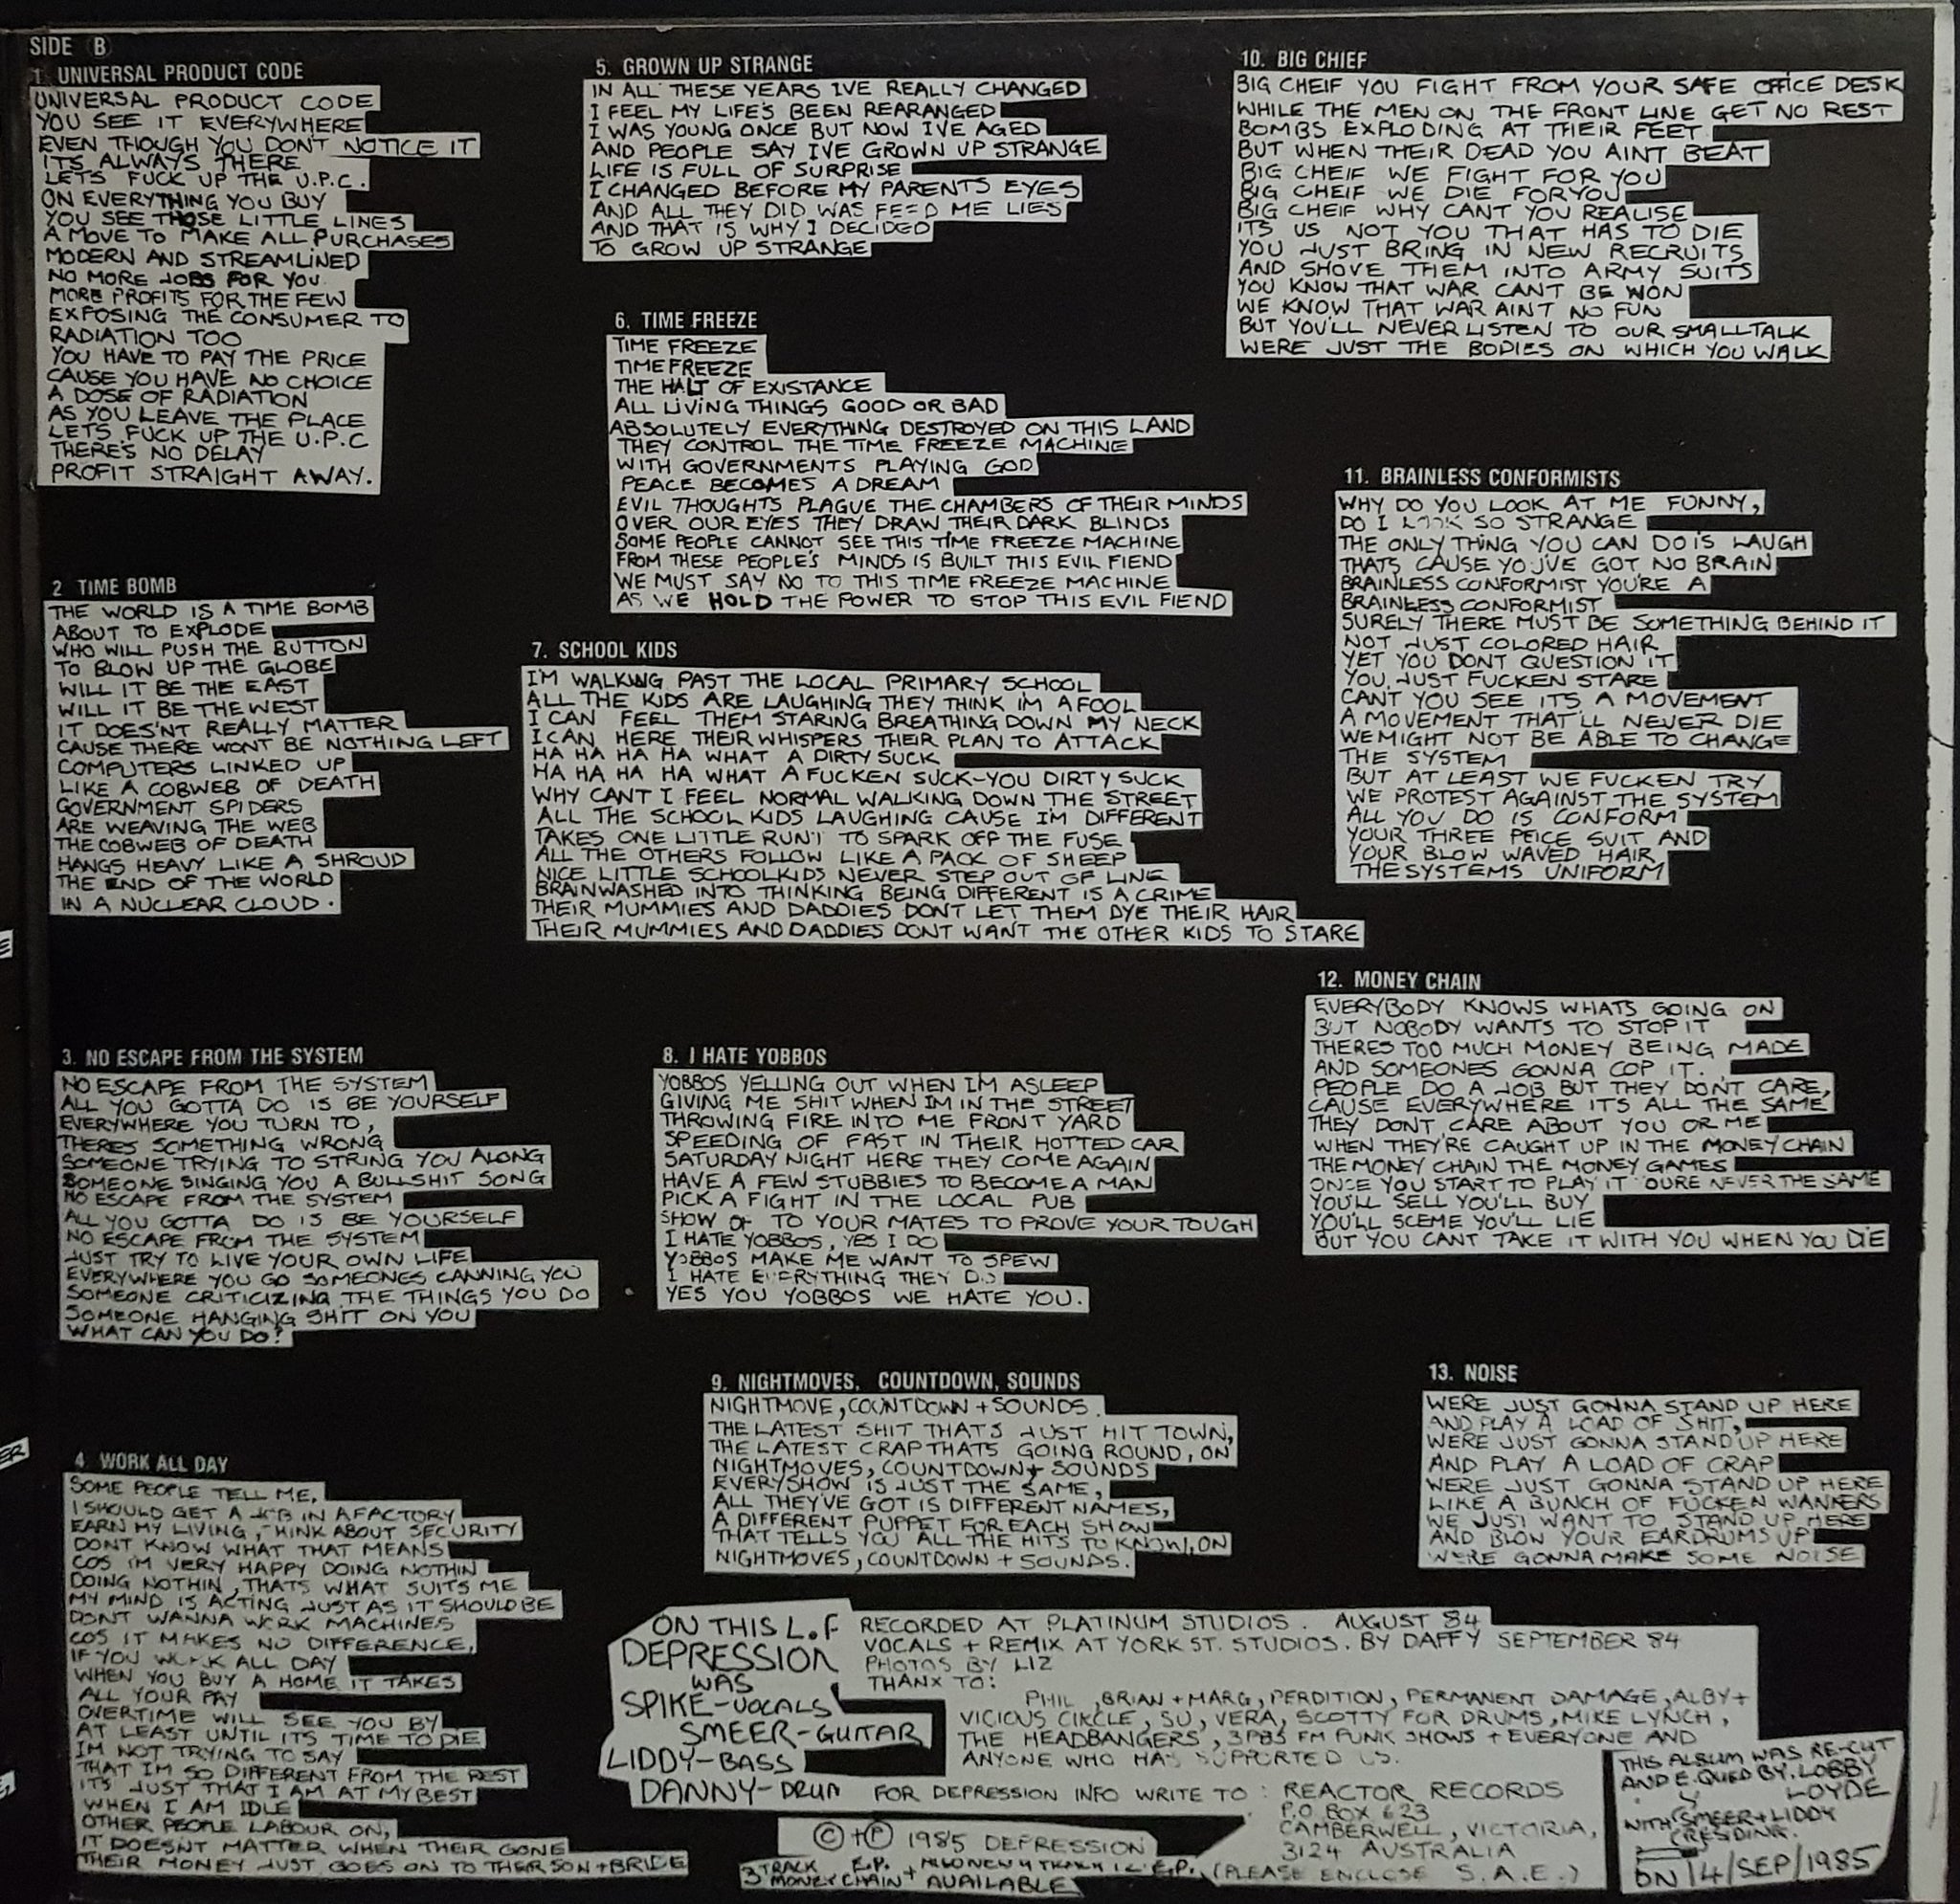 SIDE B
1. UNIVERSAL PRODUCT CODE
UNIVERSAL PRODUCT CODE
YOU SEE IT EVERYWHERE
EVEN THOUGH YOU DON'T NOTICE IT
ITS ALWAYS THERE
LETS FUCK UP THE U.P.C.
ON EVERYTHING YOU BUY
YOU SEE THOSE LITTLE LINES
A MOVE TO MAKE ALL PURCHASES
MODERN AND STREAMLINED
NO MORE JOBS FOR YOU.
MORE PROFITS FOR THE FEW
EXPOSING THE CONSUMER TO
RADIATION TOO
YOU HAVE TO PAY THE PRICE
CAUSE YOU HAVE NO CHOICE
A DOSE OF RADIATION
AS YOU LEAVE THE PLACE
LETS FUCK UP THE U.P.C
THERE'S NO DELAY
PROFIT STRAIGHT AWAY.
2 TIME BOMB
THE WORLD IS A TIME BOMB
ABOUT TO EXPLODE
WHO WILL PUSH THE BUTTON
TO BLOW UP THE GLOBE
WILL IT BE THE EAST
WILL IT BE THE WEST
IT DOES'NT REALLY MATTER
CAUSE THERE WONT BE NOTHING LEFT
COMPUTERS LINKED UP
LIKE A COBWEB OF DEATH
GOVERNMENT SPIDERS
ARE WEAVING THE WEB
THE COBWEB OF DEATH
HANGS HEAVY LIKE A SHROUD
THE END OF THE WORLD
IN A NUCLEAR CLOUD.
3. NO ESCAPE FROM THE SYSTEM
NO ESCAPE FROM THE SYSTEM
ALL YOU GOTTA DO IS BE YOURSELF
EVERYWHERE YOU TURN TO,
THERES SOMETHING WRONG
SOMEONE TRYING TO STRING YOU ALONG
SOMEONE SINGING YOU A BULLSHIT SONG
NO ESCAPE FROM THE SYSTEM
ALL YOU GOTTA DO IS BE YOURSELF
NO ESCAPE FROM THE SYSTEM
JUST TRY TO LIVE YOUR OWN LIFE
EVERYWHERE YOU GO SOMEONES CANNING YOU
SOMEONE CRITICIZING THE THINGS YOU DO
SOMEONE HANGING SHIT ON YOU
WHAT CAN YOU DO?
4. WORK ALL DAY
SOME PEOPLE TELL ME,
I SHOULD GET A JOB IN A FACTORY
EARN MY LIVING, THINK ABOUT SECURITY
DONT KNOW WHAT THAT MEANS
COS I'M VERY HAPPY DOING NOTHIN
DOING NOTHIN, THATS WHAT SUITS ME
MY MIND IS ACTING JUST AS IT SHOULD BE
DON'T WANNA WORK MACHINES
COS IT MAKES NO DIFFERENCE,
IF YOU WORK ALL DAY
WHEN YOU BUY A HOME IT TAKES
ALL YOUR PAY
OVERTIME WILL SEE YOU BY
AT LEAST UNTIL ITS TIME TO DIE
IM NOT TRYING TO SAY
THAT IM SO DIFFERENT FROM THE REST
IT'S JUST THAT I AM AT MY BEST
WHEN I AM IDLE
OTHER PEOPLE LABOUR ON,
IT DOESNT MATTER WHEN THEIR GONE
THEIR MONEY JUST GOES ON TO THEIR SON + BRIDE
5. GROWN UP STRANGE
IN ALL THESE YEARS IVE REALLY CHANGED
I FEEL MY LIFE'S BEEN REARANGED
I WAS YOUNG ONCE BUT NOW IVE AGED
AND PEOPLE SAY IVE GROWN UP STRANGE
LIFE IS FULL OF SURPRISE
I CHANGED BEFORE MY PARENTS EYES
AND ALL THEY DID WAS FEED ME LIES
AND THAT IS WHY I DECIDED
TO GROW UP STRANGE
6. TIME FREEZE
TIME FREEZE
TIME FREEZE
THE HALT OF EXISTANCE
ALL LIVING THINGS GOOD OR BAD
ABSOLUTELY EVERYTHING DESTROYED ON THIS LAND
THEY CONTROL THE TIME FREEZE MACHINE
WITH GOVERNMENTS PLAYING GOD
PEACE BECOMES A DREAM
EVIL THOUGHTS PLAGUE THE CHAMBERS OF THEIR MINDS
OVER OUR EYES THEY DRAW THEIR DARK BLINDS
SOME PEOPLE CANNOT SEE THIS TIME FREEZE MACHINE
FROM THESE PEOPLE'S MINDS IS BUILT THIS EVIL FIEND
WE MUST SAY NO TO THIS TIME FREEZE MACHINE
AS WE HOLD THE POWER TO STOP THIS EVIL FIEND
7. SCHOOL KIDS
I'M WALKING PAST THE LOCAL PRIMARY SCHOOL
ALL THE KIDS ARE LAUGHING THEY THINK IM A FOOL
I CAN FEEL THEM STARING BREATHING DOWN MY NECK
I CAN HERE THEIR WHISPERS THEIR PLAN TO ATTACK
HA HA HA HA WHAT A DIRTY SUCK
HA HA HA HA WHAT A FUCKEN SUCK-YOU DIRTY SUCK
WHY CANT I FEEL NORMAL WALKING DOWN THE STREET
ALL THE SCHOOL KIDS LAUGHING CAUSE IM DIFFERENT
TAKES ONE LITTLE RUNT TO SPARK OFF THE FUSE
ALL THE OTHERS FOLLOW LIKE A PACK OF SHEEP
NICE LITTLE SCHOOLKIDS NEVER STEP OUT OF LINE
BRAINWASHED INTO THINKING BEING DIFFERENT IS A CRIME
THEIR MUMMIES AND DADDIES DONT LET THEM DYE THEIR HAIR
THEIR MUMMIES AND DADDIES DONT WANT THE OTHER KIDS TO STARE
8. I HATE YOBBOS
YOBBOS YELLING OUT WHEN I'M ASLEEP
GIVING ME SHIT WHEN IM IN THE STREET
THROWING FIRE INTO ME FRONT YARD
SPEEDING OF FAST IN THEIR HOTTED CAR
SATURDAY NIGHT HERE THEY COME AGAIN
HAVE A FEW STUBBIES TO BECOME A MAN
PICK A FIGHT IN THE LOCAL PUB
SHOW OF TO YOUR MATES TO PROVE YOUR TOUGH
I HATE YOBBOS, YES I DO
YOBBOS MAKE ME WANT TO SPEW
I HATE EVERYTHING THEY DO
YES YOU YOBBOS WE HATE YOU.
9. NIGHTMOVES, COUNTDOWN, SOUNDS
NIGHTMOVE, COUNTDOWN + SOUNDS.
THE LATEST SHIT THAT'S JUST HIT TOWN,
THE LATEST CRAP THATS GOING ROUND, ON
NIGHTMOVES, COUNTDOWN + SOUNDS
EVERYSHOW IS JUST THE SAME,
ALL THEY'VE GOT IS DIFFERENT NAMES,
A DIFFERENT PUPPET FOR EACH SHOW
THAT TELLS YOU ALL THE HITS TO KNOW, ON
NIGHTMOVES, COUNTDOWN + SOUNDS.
10. BIG CHIEF
BIG CHEIF YOU FIGHT FROM YOUR SAFE OFFICE DESK
WHILE THE MEN ON THE FRONT LINE GET NO REST
BOMBS EXPLODING AT THEIR FEET
BUT WHEN THEIR DEAD YOU AINT BEAT
BIG CHEIF WE FIGHT FOR YOU
BIG CHEIF WE DIE FOR YOU
BIG CHEIF WHY CANT YOU REALISE
ITS US NOT YOU THAT HAS TO DIE
YOU JUST BRING IN NEW RECRUITS
AND SHOVE THEM INTO ARMY SUITS
YOU KNOW THAT WAR CANT BE WON
WE KNOW THAT WAR AINT NO FUN
BUT YOU'LL NEVER LISTEN TO OUR SMALLTALK
WERE JUST THE BODIES ON WHICH YOU WALK
11. BRAINLESS CONFORMISTS
WHY DO YOU LOOK AT ME FUNNY,
DO I LOOK SO STRANGE
THE ONLY THING YOU CAN DO IS LAUGH
THATS CAUSE YOU'VE GOT NO BRAIN
BRAINLESS CONFORMIST YOU'RE A
BRAINLESS CONFORMIST
SURELY THERE MUST BE SOMETHING BEHIND IT
NOT JUST COLORED HAIR
YET YOU DONT QUESTION IT
YOU JUST FUCKEN STARE
CANT YOU SEE ITS A MOVEMENT
A MOVEMENT THAT'LL NEVER DIE
WE MIGHT NOT BE ABLE TO CHANGE
THE SYSTEM
BUT AT LEAST WE FUCKEN TRY
WE PROTEST AGAINST THE SYSTEM
ALL YOU DO IS CONFORM
YOUR THREE PEICE SUIT AND
YOUR BLOW WAVED HAIR
THE SYSTEMS UNIFORM
12. MONEY CHAIN
EVERYBODY KNOWS WHATS GOING ON
BUT NOBODY WANTS TO STOP IT
THERES TOO MUCH MONEY BEING MADE
AND SOMEONES GONNA COP IT.
PEOPLE DO A JOB BUT THEY DON'T CARE,
CAUSE EVERYWHERE IT'S ALL THE SAME
THEY DONT CARE ABOUT YOU OR ME
WHEN THEY'RE CAUGHT UP IN THE MONEY CHAIN
THE MONEY CHAIN THE MONEY GAMES
ONCE YOU START TO PLAY IT OURE NEVER THE SAME
YOU'LL SELL YOU'LL BUY
YOU'LL SCEME YOU'LL LIE
BUT YOU CANT TAKE IT WITH YOU WHEN YOU DIE
13. NOISE
WERE JUST GONNA STAND UP HERE
AND PLAY A LOAD OF SHIT,
WERE JUST GONNA STAND UP HERE
AND PLAY A LOAD OF CRAP
WERE JUST GONNA STAND UP HERE
LIKE A BUNCH OF FUCKEN WANKERS
WE JUST WANT TO STAND UP HERE
AND BLOW YOUR EARDRUMS UP
WERE GONNA MAKE SOME NOISE
ON THIS L.P
DEPRESSION
WAS
SPIKE-VOCALS
SMEER-GUITAR
LIDDY-BASS
DANNY-DRUM
RECORDED AT PLATINUM STUDIOS. AUGUST 84
VOCALS + REMIX AT YORK ST. STUDIOS. BY DAFFY SEPTEMBER 84
PHOTOS BY LIZ
THANX TO:
PHIL, BRIAN + MARG, PERDITION, PERMANENT DAMAGE, ALBY +
VICIOUS CIRCLE, SU, VERA, SCOTTY FOR DRUMS, MIKE LYNCH,
THE HEADBANGERS, 3PBS FM PUNK SHOWS + EVERYONE AND
ANYONE WHO HAS SUPPORTED US.
FOR DEPRESSION INFO WRITE TO: REACTOR RECORDS
P.O. BOX 623
CAMBERWELL, VICTORIA,
3124 AUSTRALIA
(PLEASE ENCLOSE S.A.E.)
© + ℗ 1985 DEPRESSION
3 TRACK E.P. + ALSO NEW 4 TRACK 12" E.P.
MONEY CHAIN AVAILABLE
THIS ALBUM WAS RE-CUT
AND E.QUED BY. LOBBY
LOYDE
WITH SMEER + LIDDY
ON 14/SEP/1985